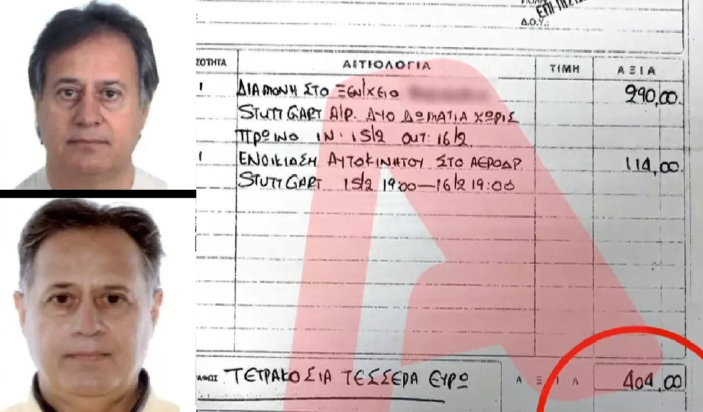 Δ.Ο.Υ.:
ΣΟΤΗΤΑ ΑΙΤΙΟΛΟΓΙΑ ΤΙΜΗ ΑΞΙΑ
1 ΔΙΑΜΟΝΗ ΣΤΟ ΞΕΝ/ΧΕΙΟ 290,00
STUTTGART AIR. ΔΥΟ ΔΩΜΑΤΙΑ ΧΩΡΙΣ
ΠΡΩΙΝΟ IN: 15/2 OUT: 16/2
1 ΕΝΟΙΚΙΑΣΗ ΑΥΤΟΚΙΝΗΤΟΥ ΣΤΟ ΑΕΡΟΔΡ. 114,00
STUTTGART 15/2 19:00—16/2 19:00
ΤΕΤΡΑΚΟΣΙΑ ΤΕΣΣΕΡΑ ΕΥΡΩ ΑΞΙΑ 404,00